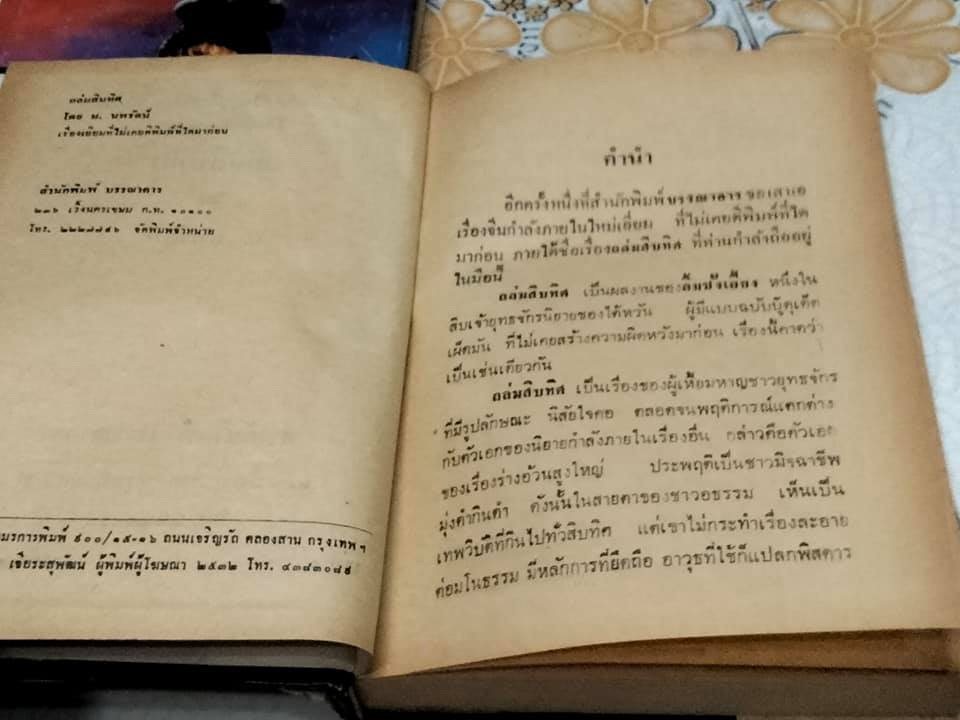 ถล่มสิบทิศ
โดย น. นพรัตน์
เรื่องเยี่ยมที่ไม่เคยตีพิมพ์ที่ใดมาก่อน
สำนักพิมพ์ บรรณาคาร
๒๓๖ เวิ้งนครเขษม ก.ท. ๑๐๑๐๐
โทร. ๒๒๒๗๗๙๖ จัดพิมพ์จำหน่าย
มรการพิมพ์ ๙๐๐/๑๕-๑๖ ถนนเจริญรัถ คลองสาน กรุงเทพ ฯ
เจียระสุพัฒน์ ผู้พิมพ์ผู้โฆษณา ๒๕๓๒ โทร. ๔๓๗๓๐๘๕
คำนำ
อีกครั้งหนึ่งที่สำนักพิมพ์บรรณาคาร ขอเสนอ
เรื่องจีนกำลังภายในใหม่เอี่ยม ที่ไม่เคยตีพิมพ์ที่ใด
มาก่อน ภายใต้ชื่อเรื่องถล่มสิบทิศ ที่ท่านกำลังถืออยู่
ในมือนี้
ถล่มสิบทิศ เป็นผลงานของลิ้มปังเอี้ยง หนึ่งใน
สิบเจ้ายุทธจักรนิยายของไต้หวัน ผู้มีแบบฉบับบู๊ดุเด็ด
เผ็ดมัน ที่ไม่เคยสร้างความผิดหวังมาก่อน เรื่องนี้คาดว่า
เป็นเช่นเดียวกัน
ถล่มสิบทิศ เป็นเรื่องของผู้เหี้ยมหาญชาวยุทธจักร
ที่มีรูปลักษณะ นิสัยใจคอ ตลอดจนพฤติการณ์แตกต่าง
กับตัวเอกของนิยายกำลังภายในเรื่องอื่น กล่าวคือตัวเอก
ของเรื่องร่างอ้วนสูงใหญ่ ประพฤติเป็นชาวมิจฉาชีพ
มุ่งดำกินดำ ดังนั้นในสายตาของชาวอธรรม เห็นเป็น
เทพวิบัติที่กินไปทั่วสิบทิศ แต่เขาไม่กระทำเรื่องละอาย
ต่อมโนธรรม มีหลักการที่ยึดถือ อาวุธที่ใช้ก็แปลกพิสดาร